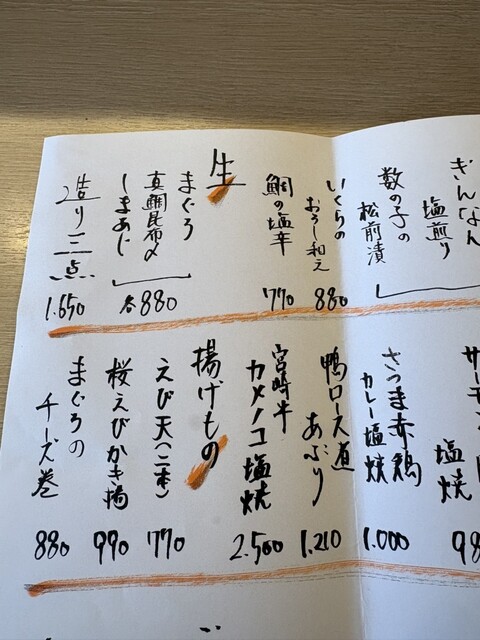 ぎんなん
塩煎り
数の子の
松前漬
いくらの
おろし和え
880
鯛の塩辛
770
生
まぐろ
真鯛昆布〆
しまあじ
各880
造り三点
1.650
塩焼
98
さつま赤鶏
カレー塩焼
1.000
鴨ロース直
あぶり
1.210
宮崎牛
カメノコ塩焼
2.500
揚げもの
えび天(二本)
770
桜えびかき揚
990
まぐろの
チーズ巻
880